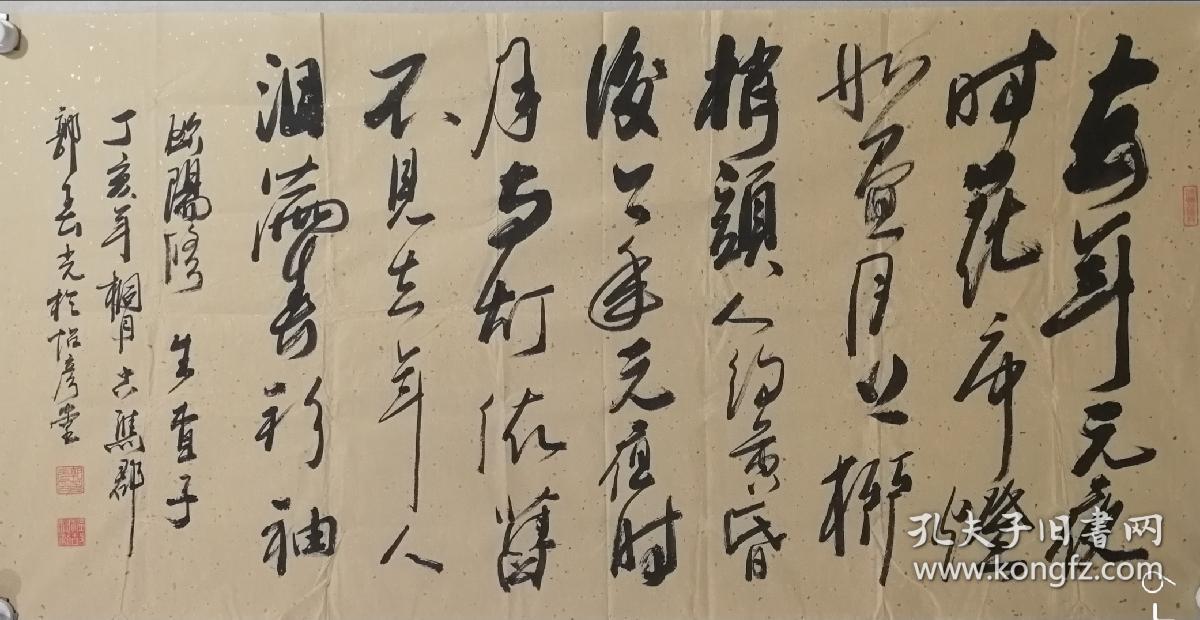 去年元夜
时花市燈
如晝月上柳
梢頭人約黄昏
後今年元夜时
月与灯依舊
不見去年人
泪滿春衫袖
欧陽修 生查子
丁亥年桐月古郡
郭春光於怡彦堂
孔夫子旧书网
www.kongfz.com